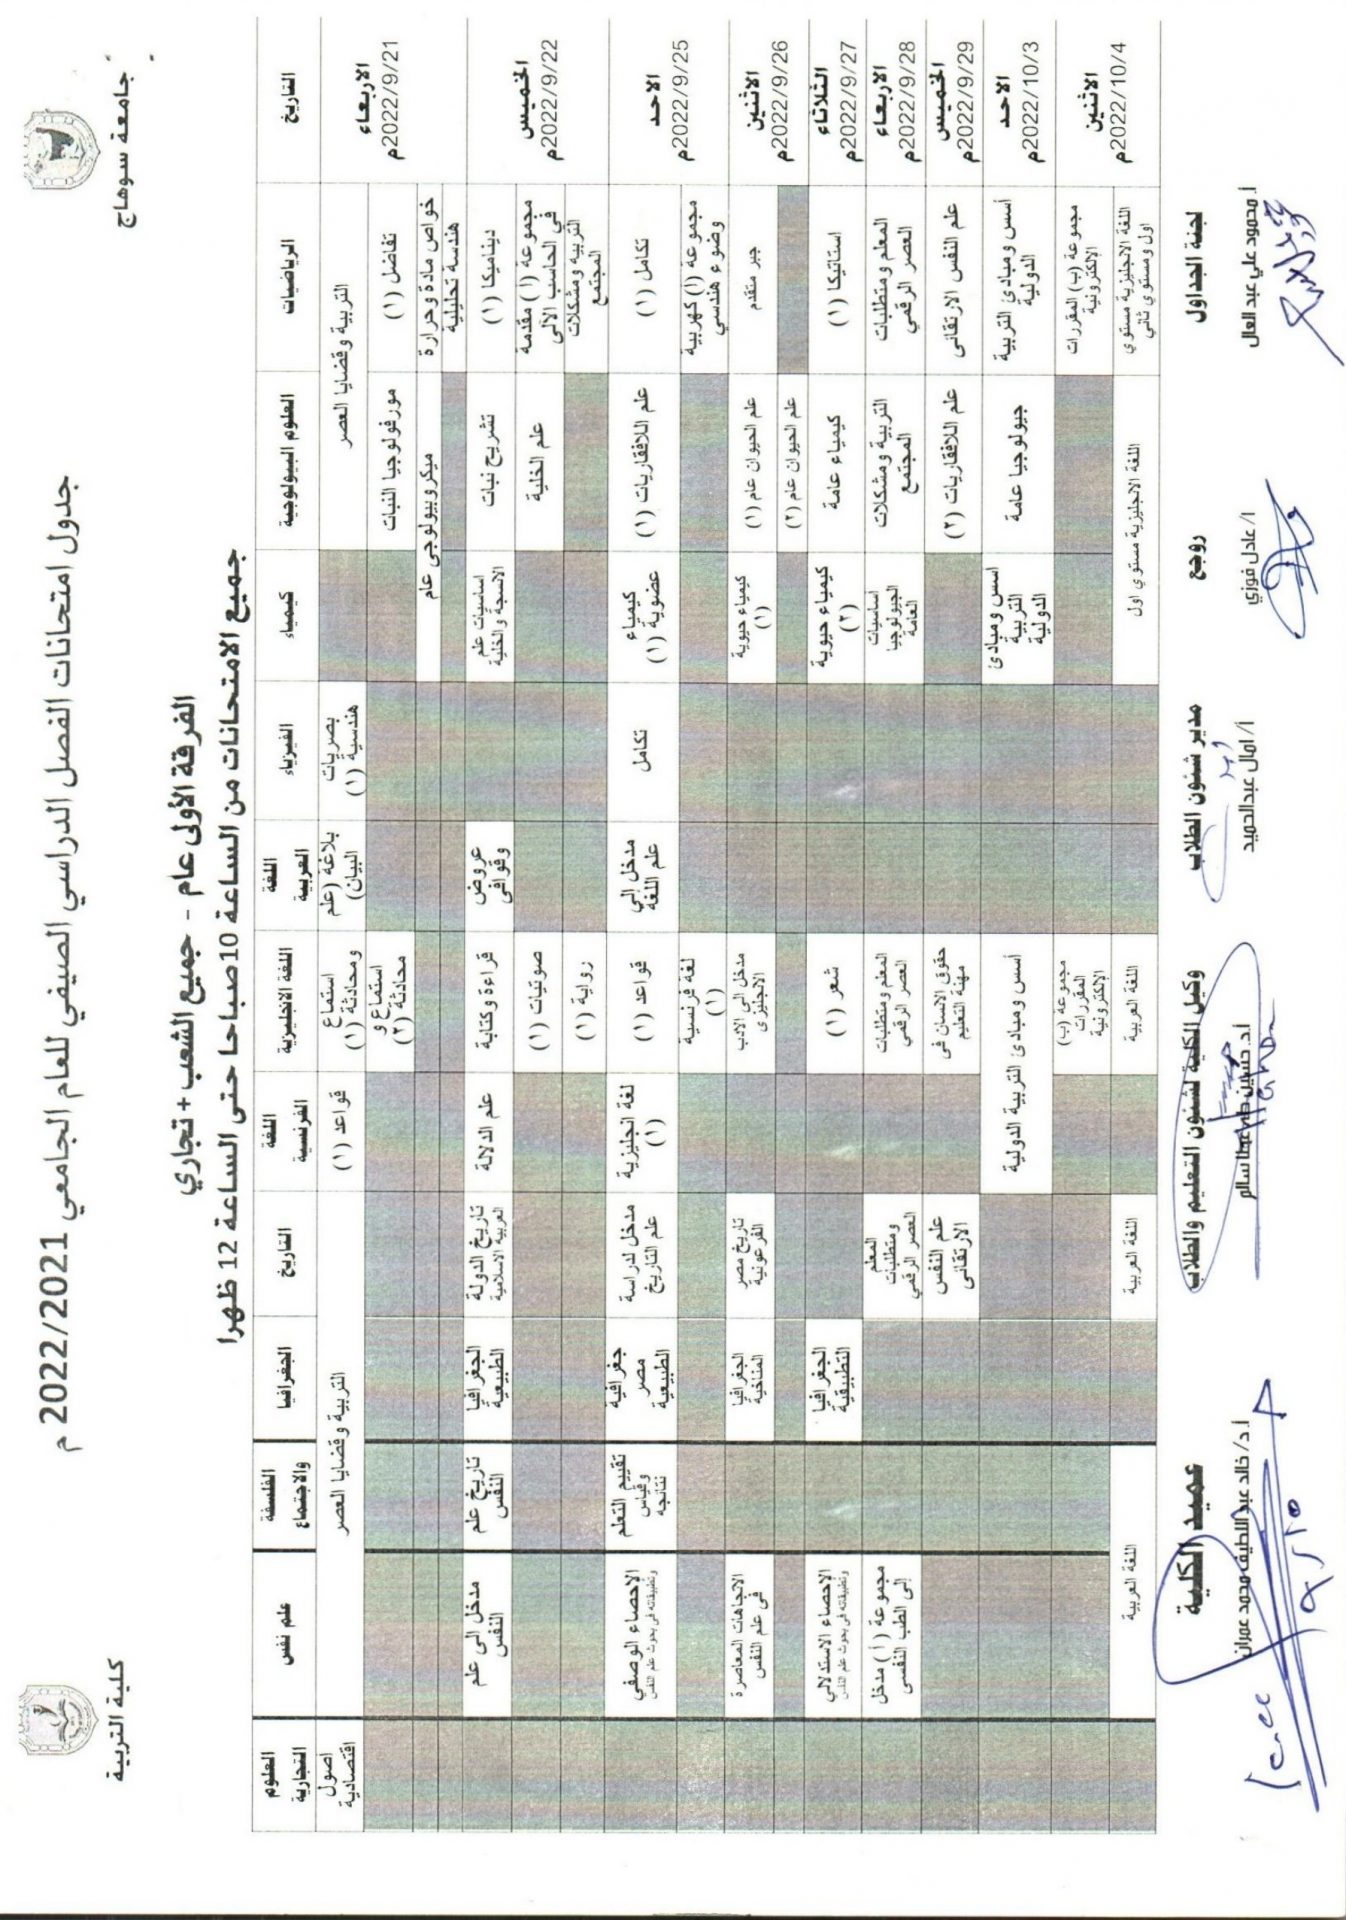 جامعة سوهاج
كلية التربية
جدول امتحانات الفصل الدراسي الصيفي للعام الجامعي 2022/2021 م
الفرقة الأولى عام - جميع الشعب + تجاري
جميع الامتحانات من الساعة 10صباحا حتى الساعة 12 ظهرا
التاريخ الرياضيات العلوم البيولوجية كيمياء الفيزياء اللغة العربية اللغة الانجليزية اللغة الفرنسية التاريخ الجغرافيا الفلسفة والاجتماع علم نفس العلوم التجارية
الاربعاء 2022/9/21م
التربية وقضايا العصر بصريات هندسية (١) بلاغة (علم البيان) استماع ومحادثة (١) قواعد (١) التربية وقضايا العصر اصول اقتصادية
تفاضل (١) مورفولوجيا النبات استماع و محادثة (٢)
خواص مادة وحرارة ميكروبيولوجى عام
هندسة تحليلية
الخميس 2022/9/22م
ديناميكا (١) تشريح نبات اساسيات علم الانسجة والخلية عروض وقوافى قراءة وكتابة علم الدلالة تاريخ الدولة العربية الاسلامية الجغرافيا الطبيعية تاريخ علم النفس مدخل الى علم النفس
مجموعة (أ) مقدمة في الحاسب الآلى علم الخلية صوتيات (١)
التربية ومشكلات المجتمع رواية (١)
الاحد 2022/9/25م
تكامل (١) علم اللافقاريات (١) كيمياء عضوية (١) تكامل مدخل إلي علم اللغة قواعد (١) لغة انجليزية (١) مدخل لدراسة علم التاريخ جغرافية مصر الطبيعية تقييم التعلم وقياس نتائجه الإحصاء الوصفي وتطبيقاته فى بحوث علم النفس
مجموعة (أ) كهربية وضوء هندسي لغة فرنسية (١)
الاثنين 2022/9/26م
جبر متقدم علم الحيوان عام (١) كيمياء حيوية (١) مدخل الى الادب الانجليزى تاريخ مصر الفرعونية الجغرافيا المناخية الاتجاهات المعاصرة فى علم النفس
علم الحيوان عام (٢)
الثلاثاء 2022/9/27م
استاتيكا (١) كيمياء عامة كيمياء حيوية (٢) شعر (١) الجغرافيا التطبيقية الإحصاء الاستدلالي وتطبيقاته فى بحوث علم النفس
الاربعاء 2022/9/28م
المعلم ومتطلبات العصر الرقمي التربية ومشكلات المجتمع اساسيات الجيولوجيا العامة المعلم ومتطلبات العصر الرقمي المعلم ومتطلبات العصر الرقمي مجموعة (أ) مدخل إلى الطب النفسى
الخميس 2022/9/29م
علم النفس الارتقائى علم اللافقاريات (٢) حقوق الانسان فى مهنة التعليم علم النفس الارتقائى
الاحد 2022/10/3م
أسس ومبادئ التربية الدولية جيولوجيا عامة اسس ومبادئ التربية الدولية أسس ومبادئ التربية الدولية
الاثنين 2022/10/4م
مجموعة (ب) المقررات الإلكترونية مجموعة (ب) المقررات الإلكترونية
اللغة الانجليزية مستوي اول ومستوي ثاني اللغة الانجليزية مستوي اول اللغة العربية اللغة العربية اللغة العربية
لجنة الجداول روجع مدير شئون الطلاب وكيل الكلية لشئون التعليم والطلاب عميد الكلية
أ. محمود علي عبد العال ا/ عادل فوزي أ/ امال عبدالحميد أ.د/ خالد عبد اللطيف محمد عمران